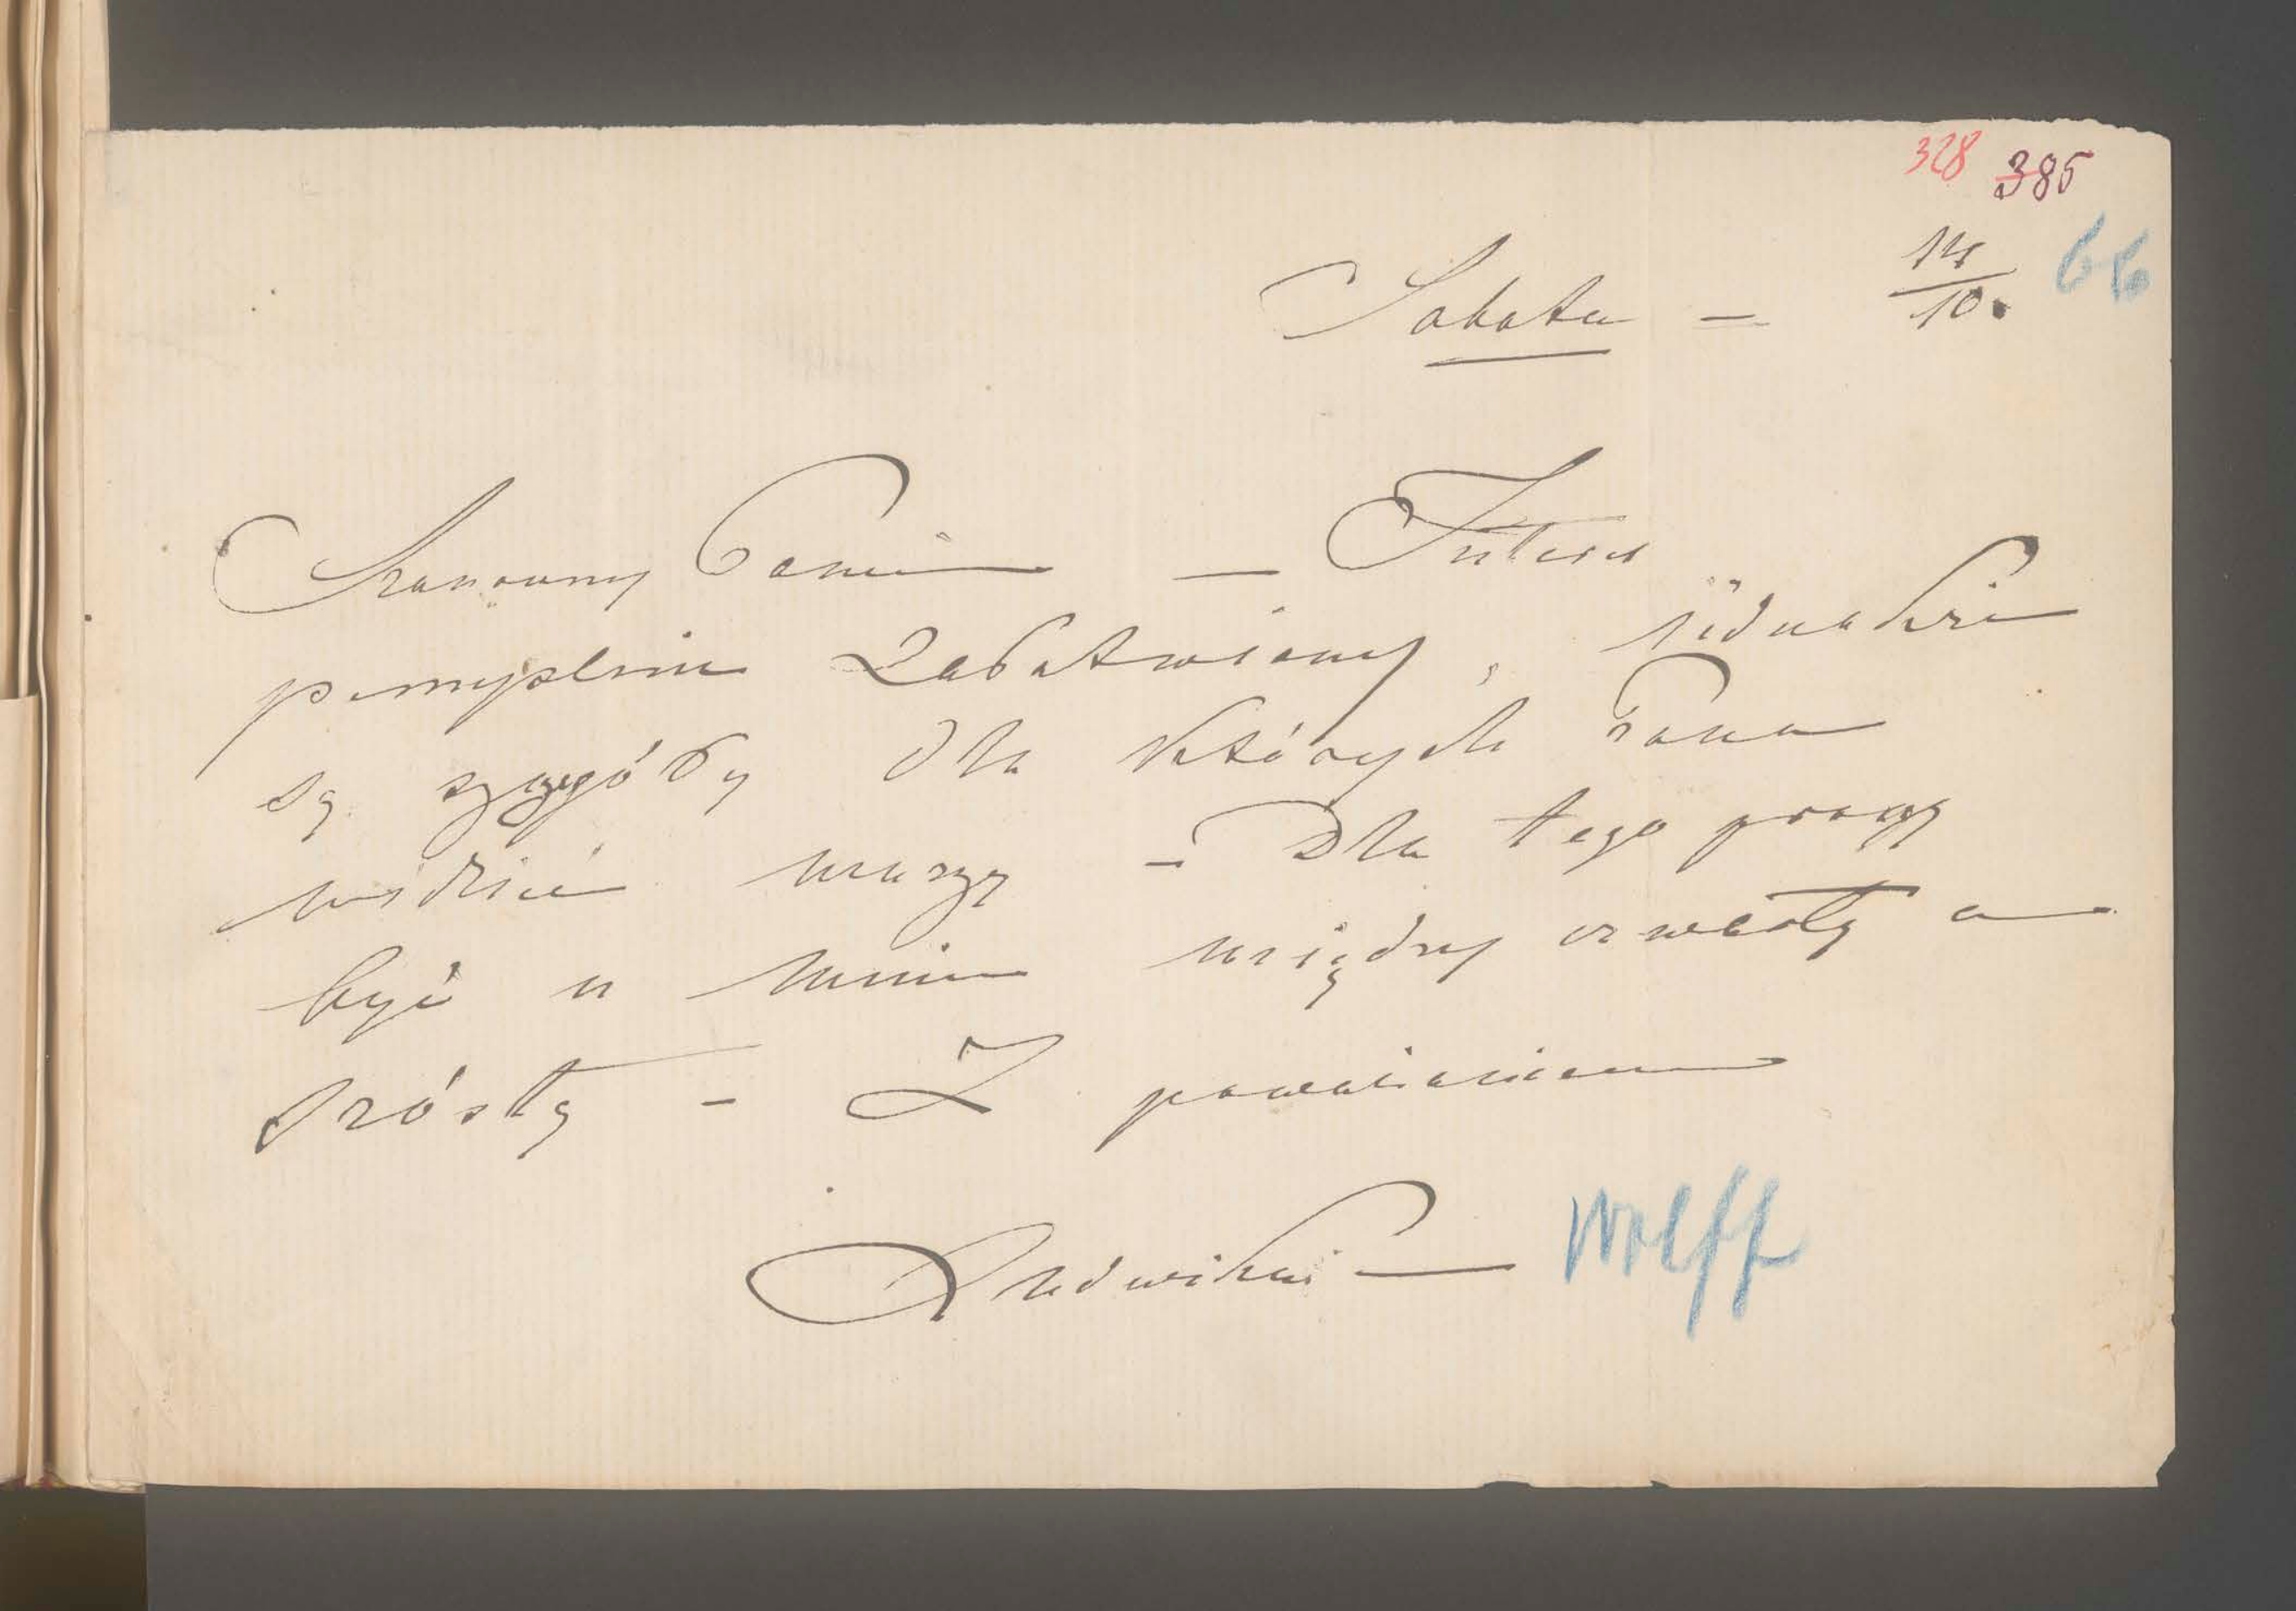 328 385
Sobota — 14/10. 66
Szanowny Panie — Interes
pomyślnie załatwiony, jednakże
są szczegóły dla których Pana
widzieć muszę — Dla tego proszę
być u mnie między czwartą a
szóstą — Z poważaniem
Wolff